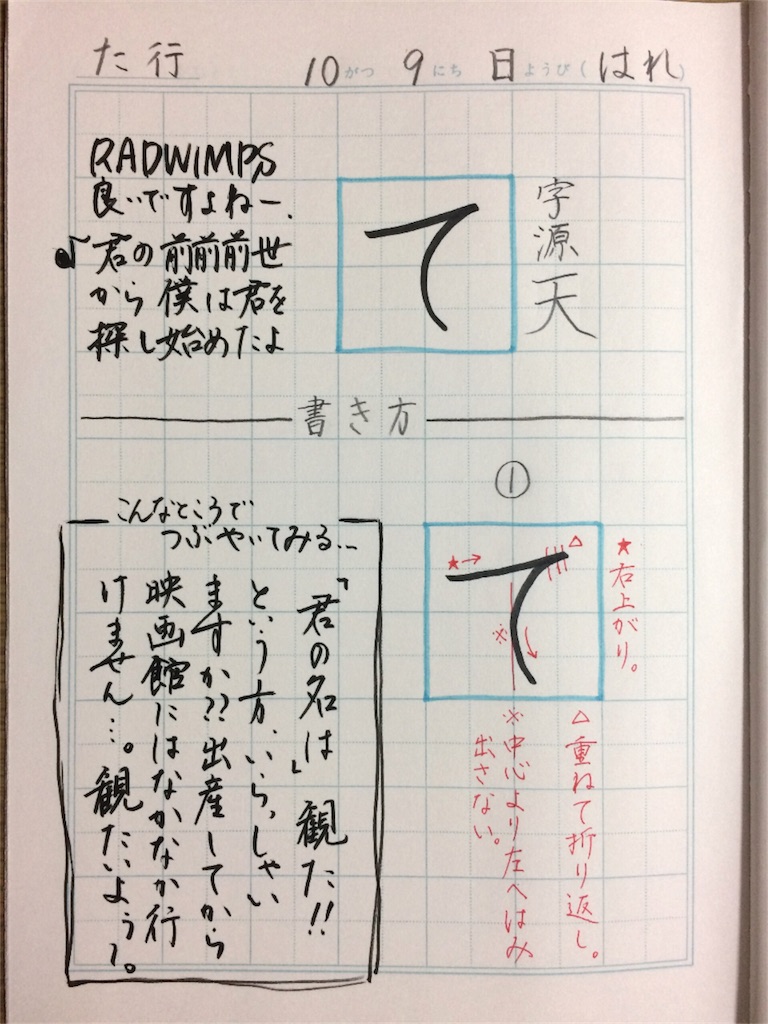 た行
10がつ 9にち 日ようび(はれ)
RADWIMPS
良いですよねー、
♪君の前前前世
から僕は君を
探し始めたよ
て
字源
天
書き方
①
こんなところで
つぶやいてみる…
「君の名は」観た!!
という方、いらっしゃい
ますか??出産してから
映画館にはなかなか行
けません…。観たいよぅー。
★→
△
て
※
★右上がり。
△重ねて折り返し。
※中心より左へはみ
出さない。